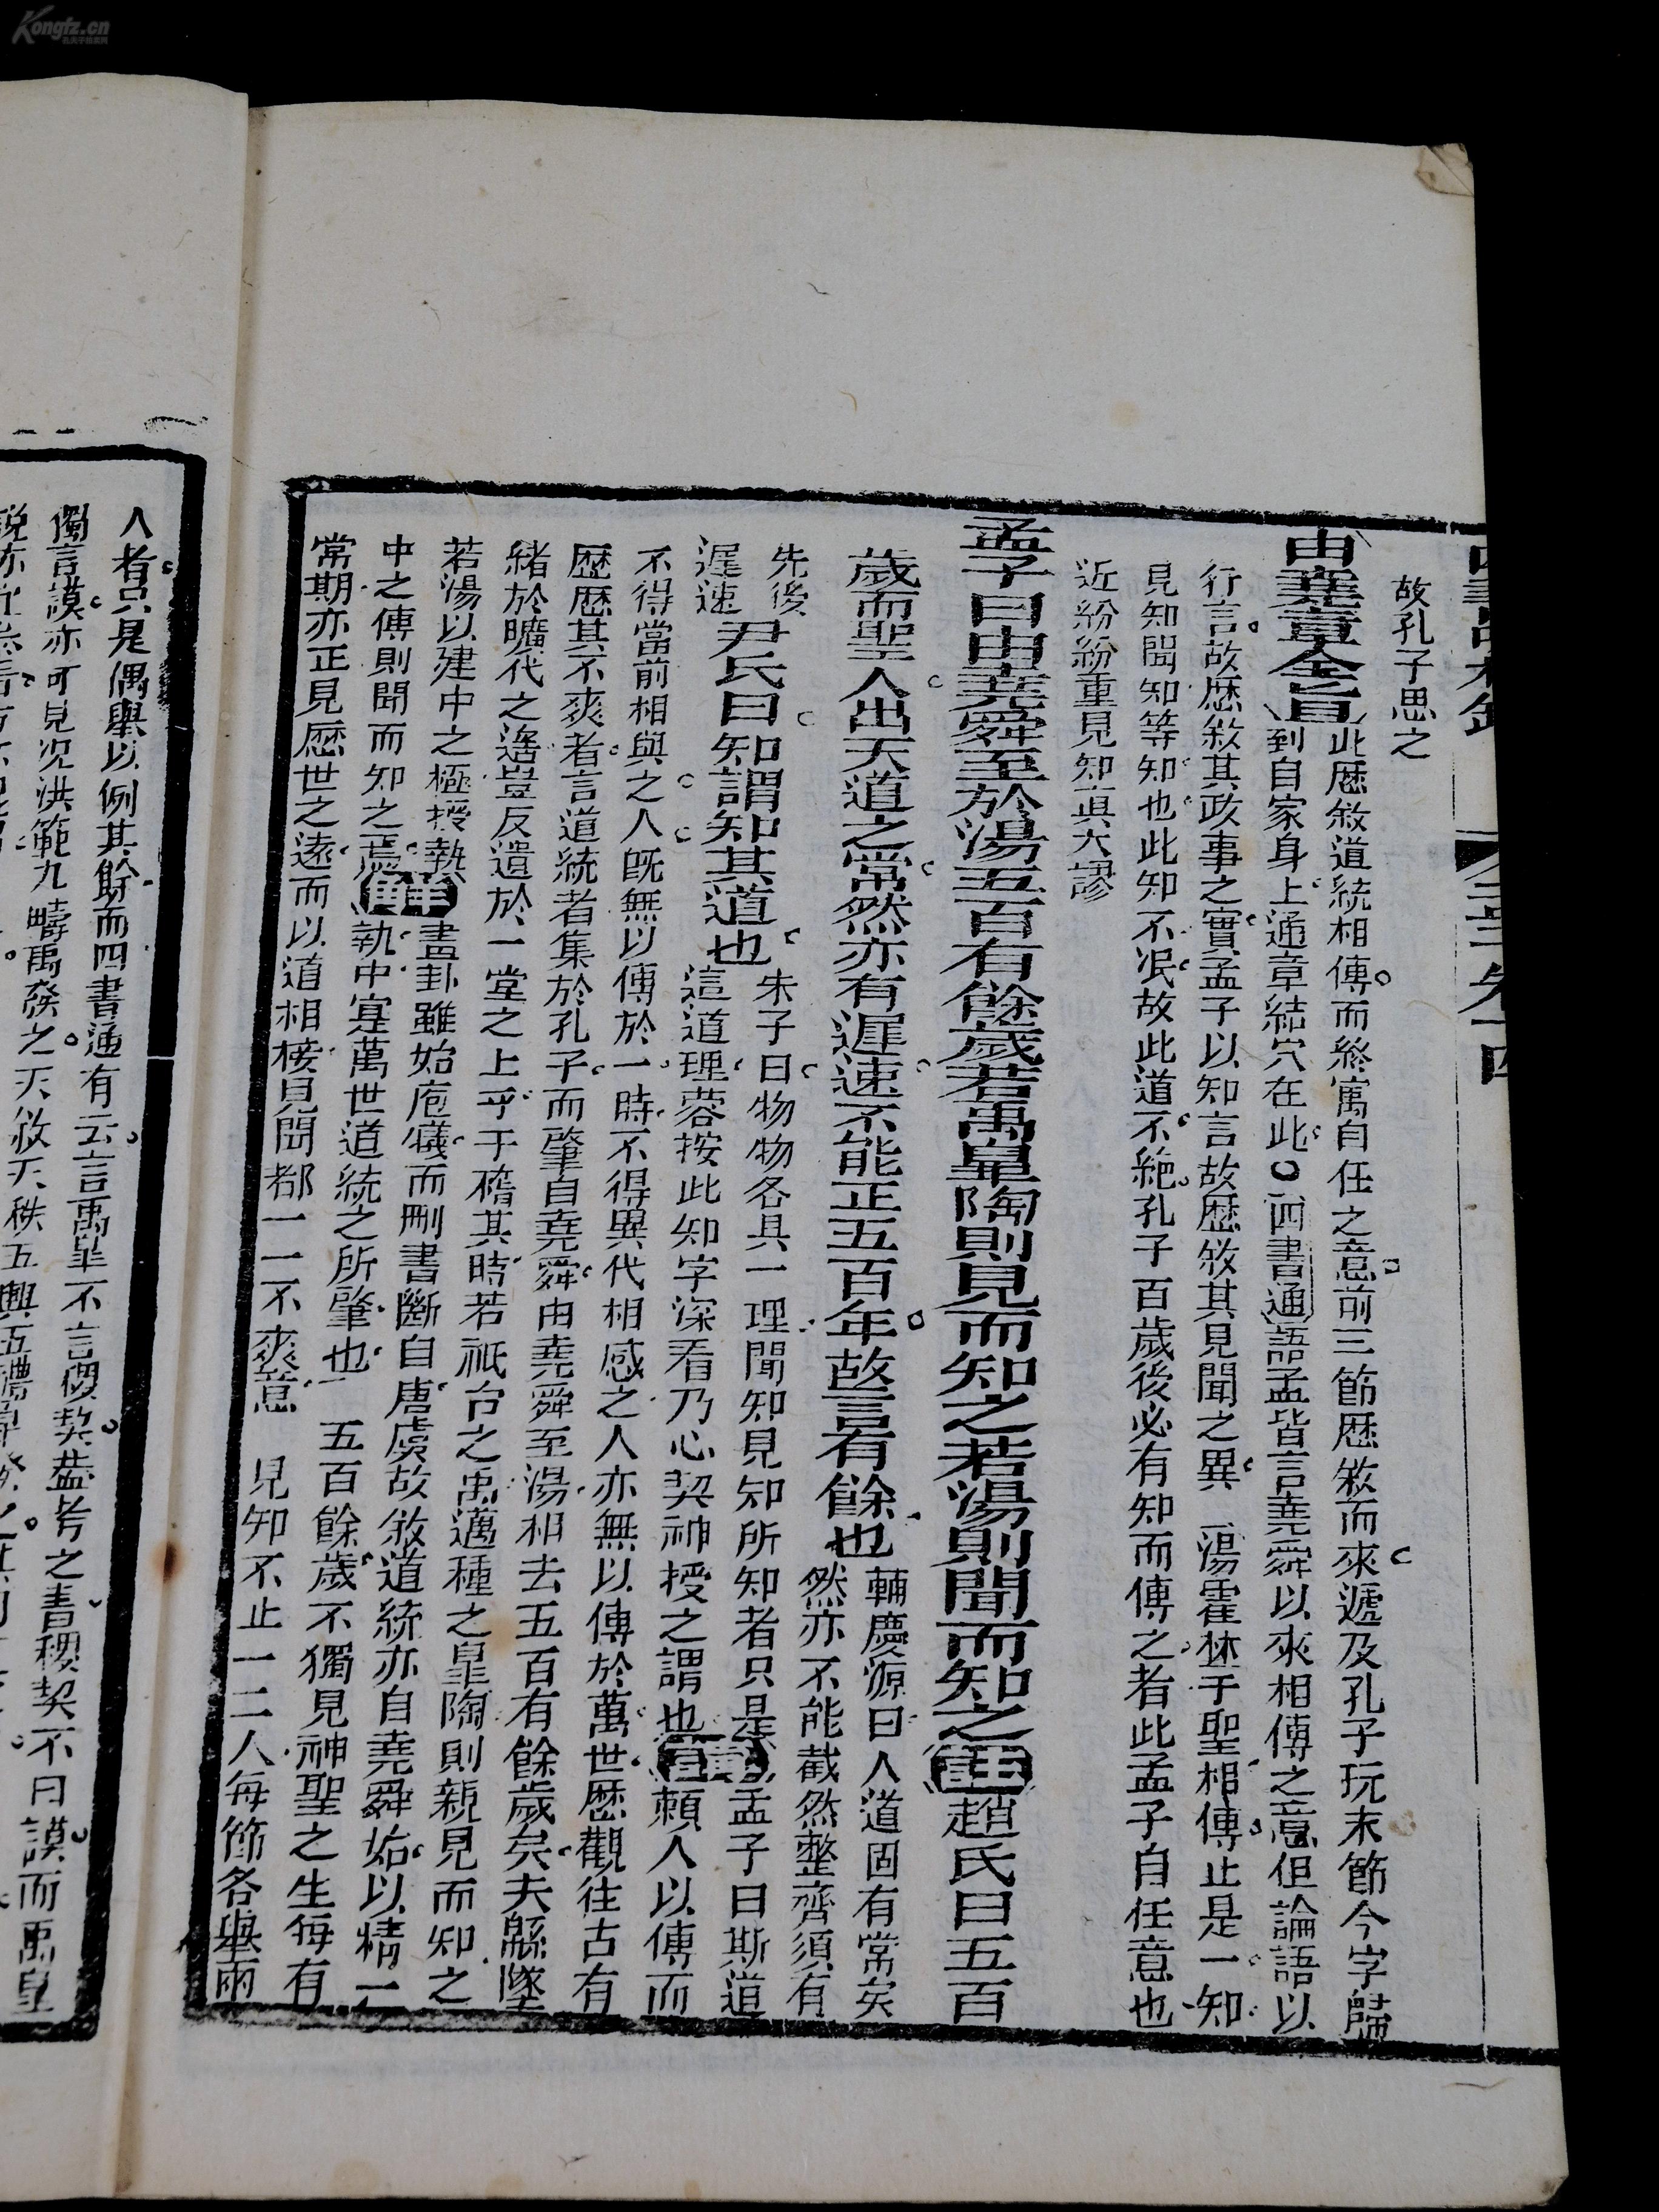 Kongfz.cn
故孔子思之
由堯章全旨此歷敘道統相傳而終寓自任之意前三節歷敘而來遞及孔子玩末節今字歸
到自家身上通章結穴在此〇四書通語孟皆言堯舜以來相傳之意但論語以
行言故歷敘其政事之實孟子以知言故歷敘其見聞之異湯霍林于聖相傳止是一知
見知聞知等知也此知不泯故此道不絶孔子百歲後必有知而傳之者此孟子自任意也
近紛紛重見知眞大謬
孟子曰由堯舜至於湯五百有餘歲若禹皐陶則見而知之若湯則聞而知之註趙氏曰五百
歲而聖人出天道之常然亦有遲速不能正五百年故言有餘也輔慶源曰人道固有常矣
然亦不能截然整齊須有
先後
遲速尹氏曰知謂知其道也朱子曰物物各具一理聞知見知所知者只是
這道理蓉按此知字深看乃心契神授之謂也孟子曰斯道
不得當前相與之人既無以傳於一時不得異代相感之人亦無以傳於萬世歷觀往古有
歷歷其不爽者言道統者集於孔子而肇自堯舜由堯舜至湯相去五百有餘歲矣夫緜墜
緒於曠代之遙豈反遺於一堂之上乎于稽其時若祇台之禹邁種之皐陶則親見而知之
若湯以建中之極授執畫卦雖始庖犧而刪書斷自唐虞故敘道統亦自堯舜始以精一
中之傳則聞而知之焉執中寔萬世道統之所肇也 五百餘歲不獨見神聖之生每有
常期亦正見歷世之遠而以道相接見聞都一一不爽意 見知不止一二人每節各舉兩
人者只是偶舉以例其餘而四書通有云言禹皐不言稷契葢考之書稷契不曰謨而禹皐
獨言謨亦可見況洪範九疇禹發之天敘天秩五典五禮